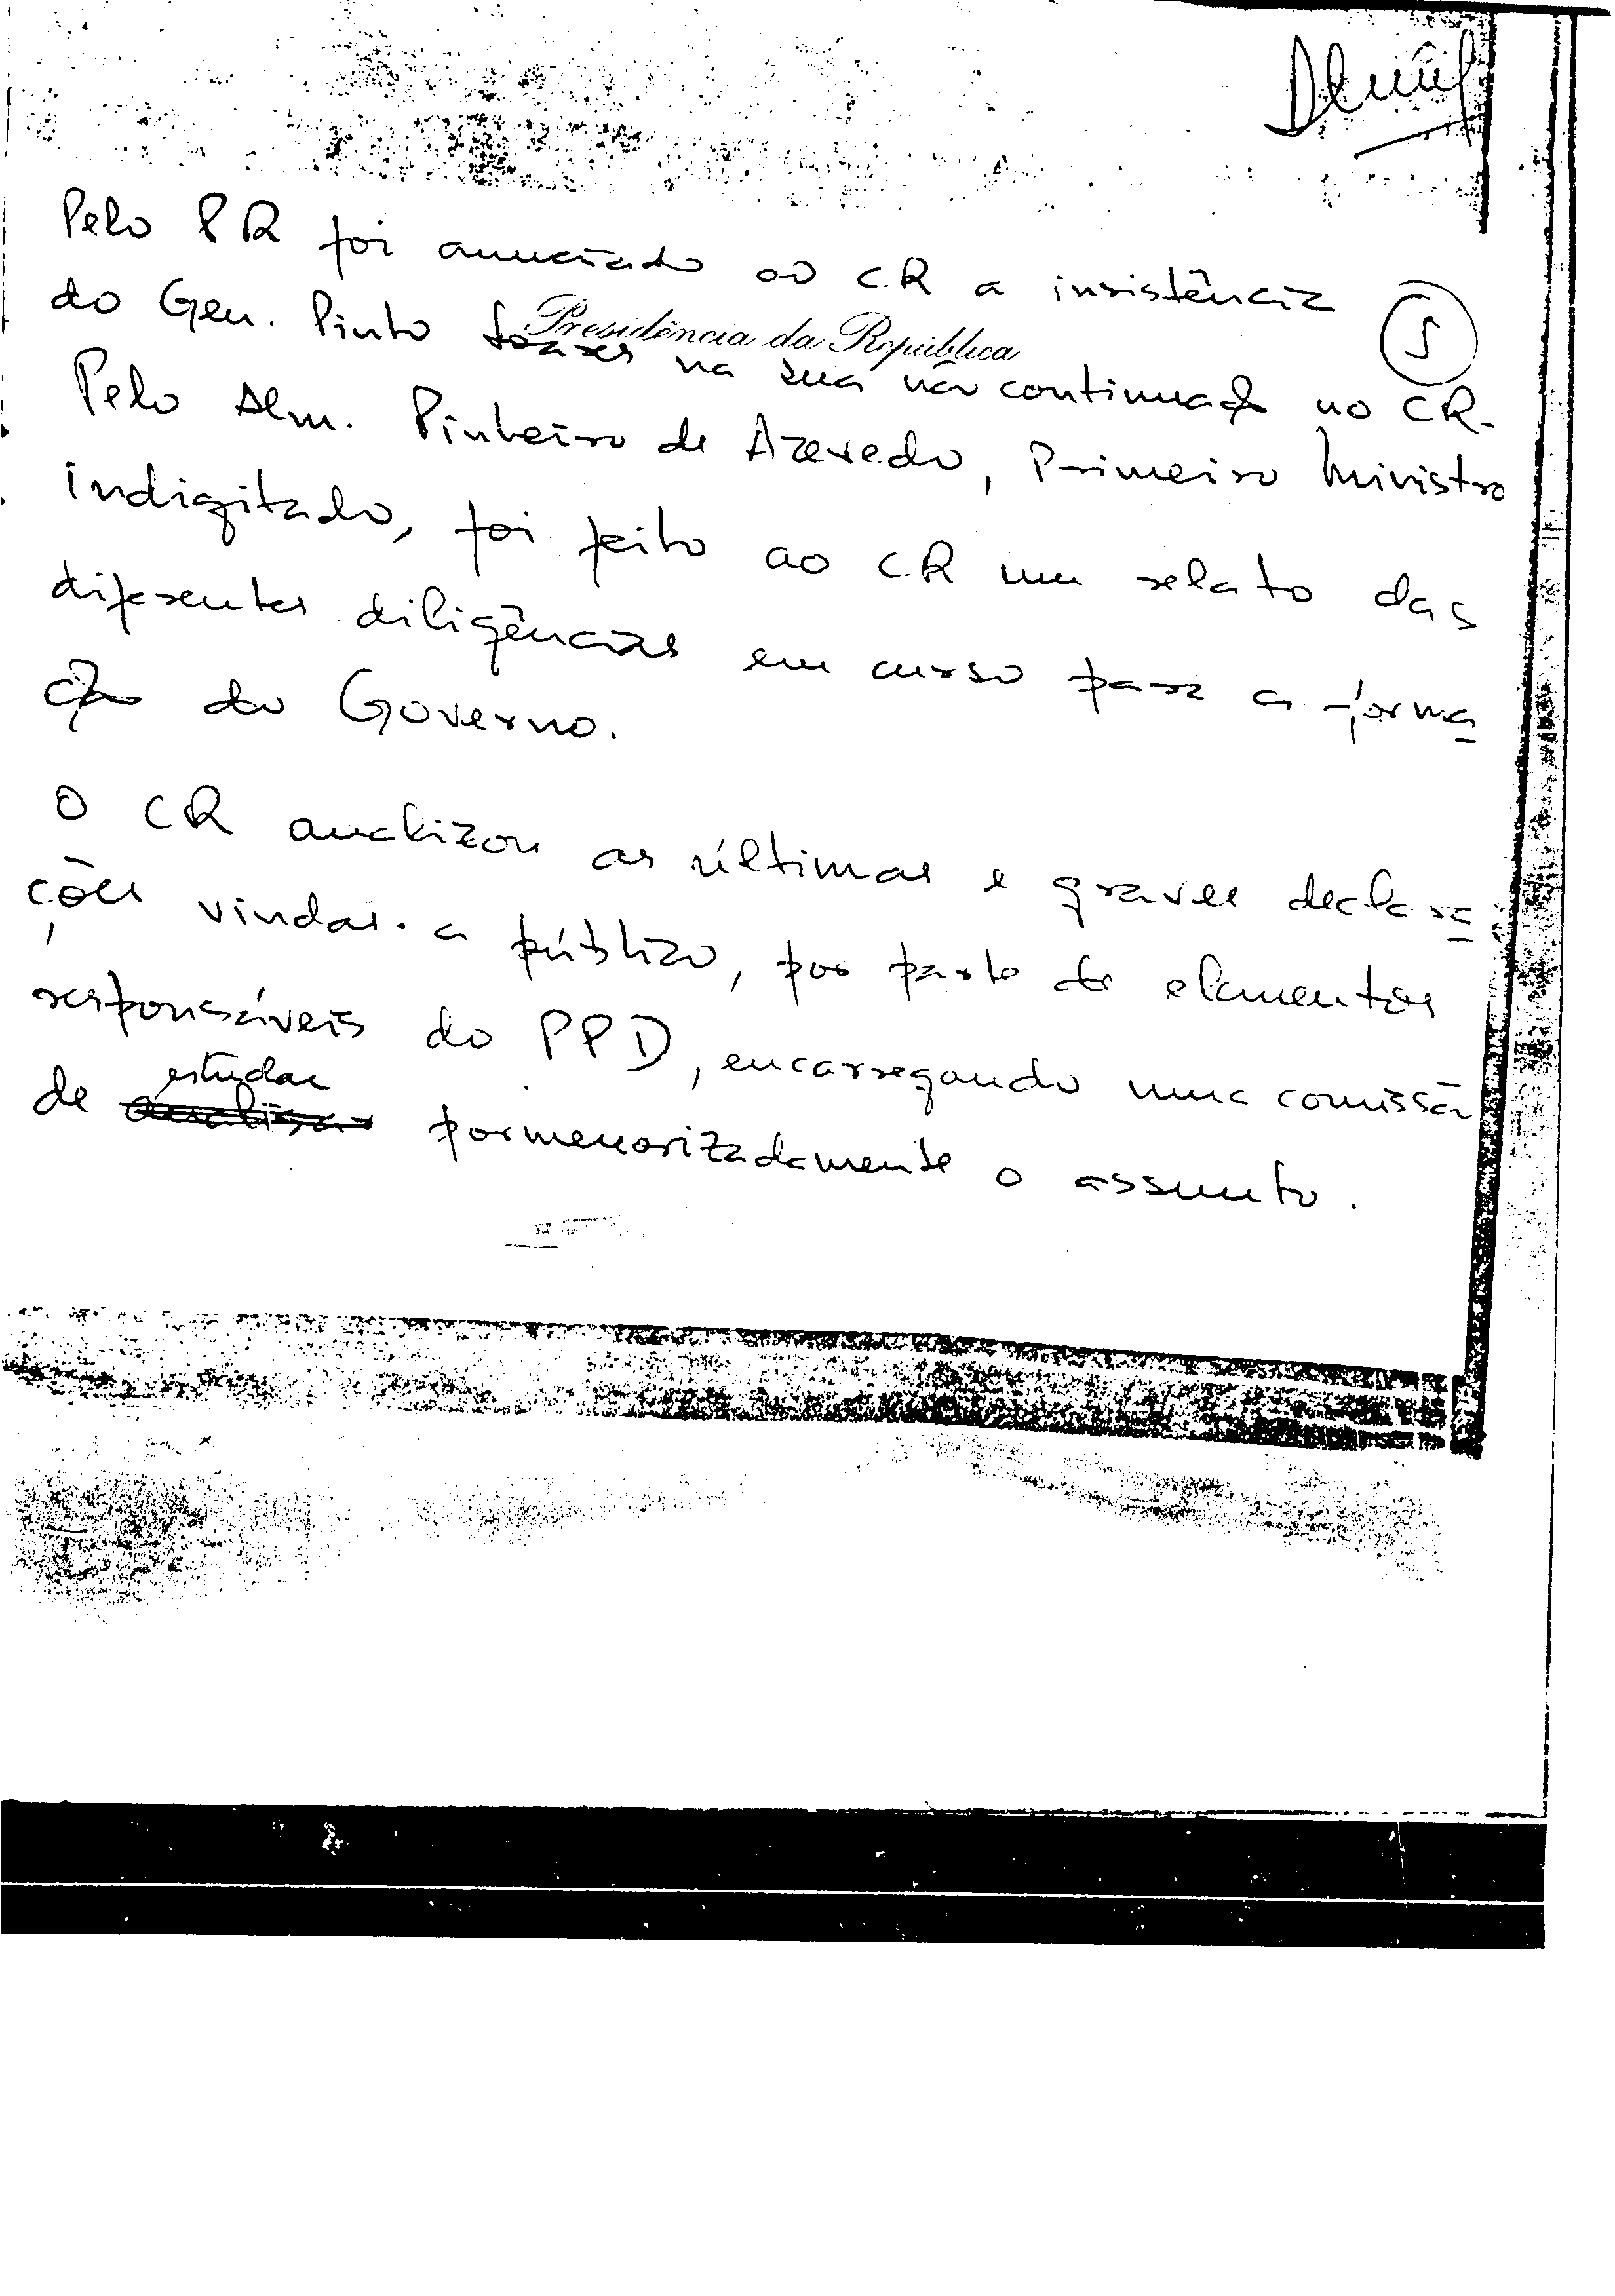 Pelo PR foi anunciado ao C.R a insistência
5
Presidência da República
do Gen. Pinto Soares na sua não continuação no CR.
Pelo Alm. Pinheiro de Azevedo, Primeiro Ministro
indigitado, foi feito ao C.R um relato das
diferentes diligências em curso para a forma
ção do Governo.
O CR analizou as últimas e graves declara
ções vindas a público, por parte de elementos
responsáveis do PPD, encarregando uma comissão
estudar
de analisar pormenorizadamente o assunto.